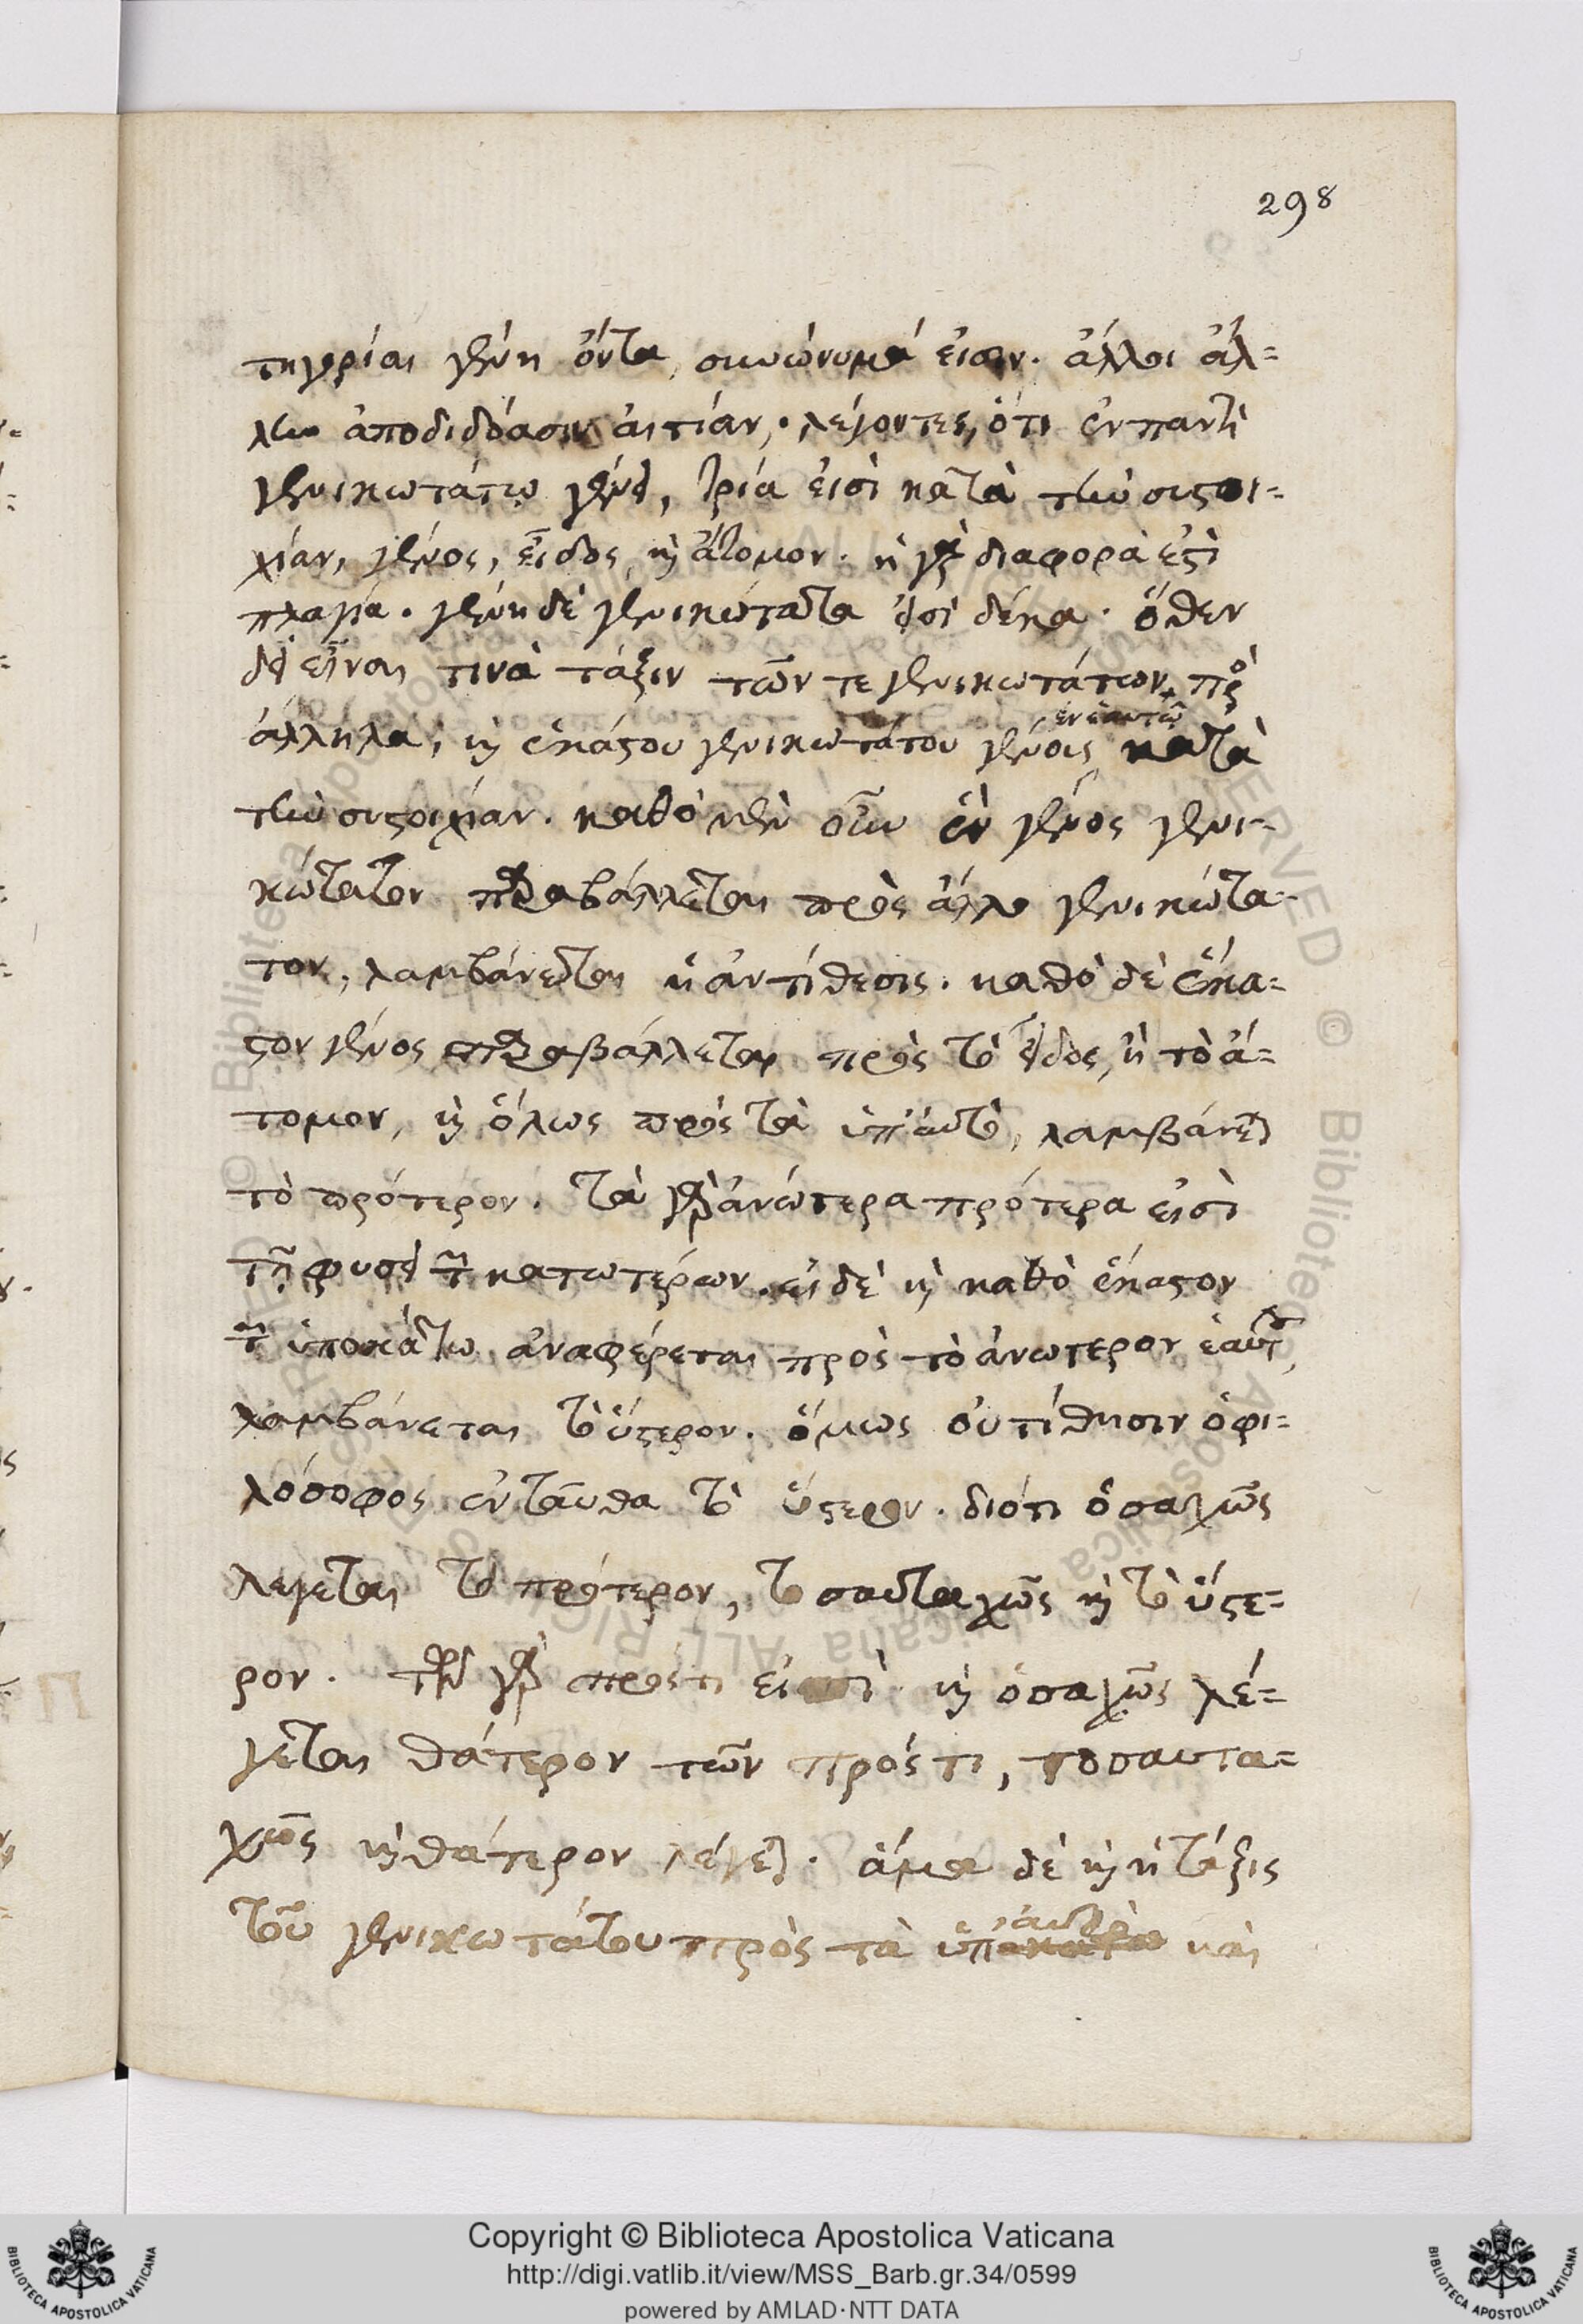 298
τηγορίαι γένη ὄντα, συνώνυμά εἰσιν. ἄλλοι ἄλ=
λην ἀποδιδόασιν αἰτίαν, λέγοντες, ὅτι ἐν παντὶ
γενικωτάτῳ γένει, τρία εἰσὶ κατὰ τὴν συστοι=
χίαν, γένος, εἶδος, καὶ ἄτομον. ἡ γὰρ διαφορὰ ἐστὶ
πλαγία. γένη δὲ γενικώτατα εἰσὶ δέκα. ὅθεν
δεῖ εἶναι τινὰ τάξιν τῶν τε γενικωτάτων πρὸς
ἐν ἑαυτῷ
ἄλληλα, καὶ ἑκάστου γενικωτάτου γένους κατὰ
τὴν συστοιχίαν. καθὸ μὲν οὖν ἓν γένος γενι=
κώτατον παραβάλλεται πρὸς ἄλλο γενικώτα=
τον, λαμβάνεται ἡ ἀντίθεσις. καθὸ δὲ ἕκα=
στον γένος παραβάλλεται πρὸς τὸ εἶδος, ἢ τὸ ἄ=
τομον, καὶ ὅλως πρὸς τὰ ὑπ' αὐτὸ, λαμβάνεται
τὸ πρότερον. τὰ γὰρ ἀνώτερα πρότερα εἰσὶ
τῇ φύσει τῶν κατωτέρων. εἰ δὲ καὶ καθὸ ἕκαστον
τῶν ὑποκάτω ἀναφέρεται πρὸς τὸ ἀνώτερον ἑαυτοῦ,
λαμβάνεται τὸ ὕστερον. ὅμως οὐ τίθησιν ὁ φι=
λόσοφος ἐνταῦθα τὸ ὕστερον. διότι ὁσαχῶς
λέγεται τὸ πρότερον, τοσαυταχῶς καὶ τὸ ὕστε=
ρον. τῶν γὰρ πρός τι εἰσὶ. καὶ ὁσαχῶς λέ=
γεται θάτερον τῶν πρός τι, τοσαυτα=
χῶς καὶ θάτερον λέγεται. ἅμα δὲ καὶ ἡ τάξις
τοῦ γενικωτάτου πρὸς τὰ ὑπ' αὐτὸ καὶ
Copyright © Biblioteca Apostolica Vaticana
http://digi.vatlib.it/view/MSS_Barb.gr.34/0599
powered by AMLAD·NTT DATA
BIBLIOTECA APOSTOLICA VATICANA
BIBLIOTECA APOSTOLICA VATICANA